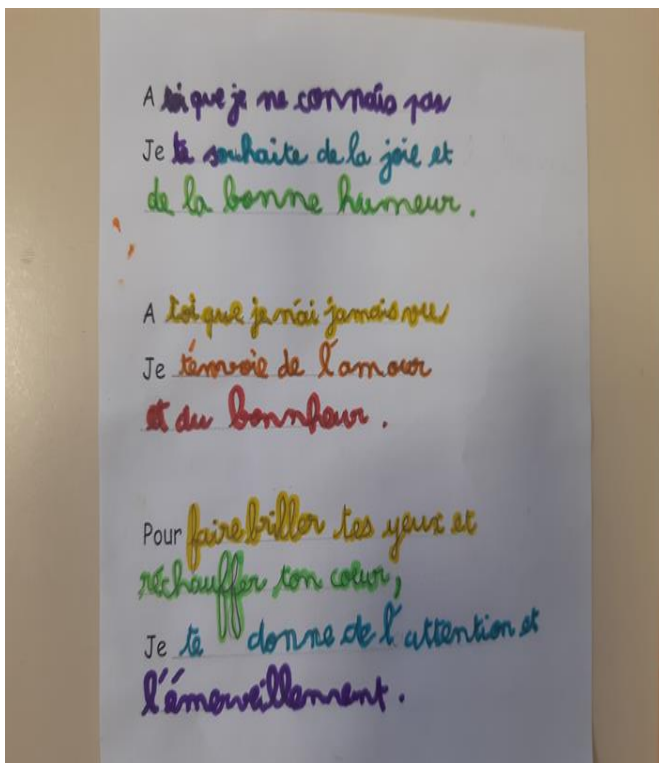 A toi que je ne connais pas
Je te souhaite de la joie et
de la bonne humeur.
A toi que je n'ai jamais vu
Je t'envoie de l'amour
et du bonnheur.
Pour faire briller tes yeux et
réchauffer ton cœur,
Je te donne de l'attention et
l'émerveillement.